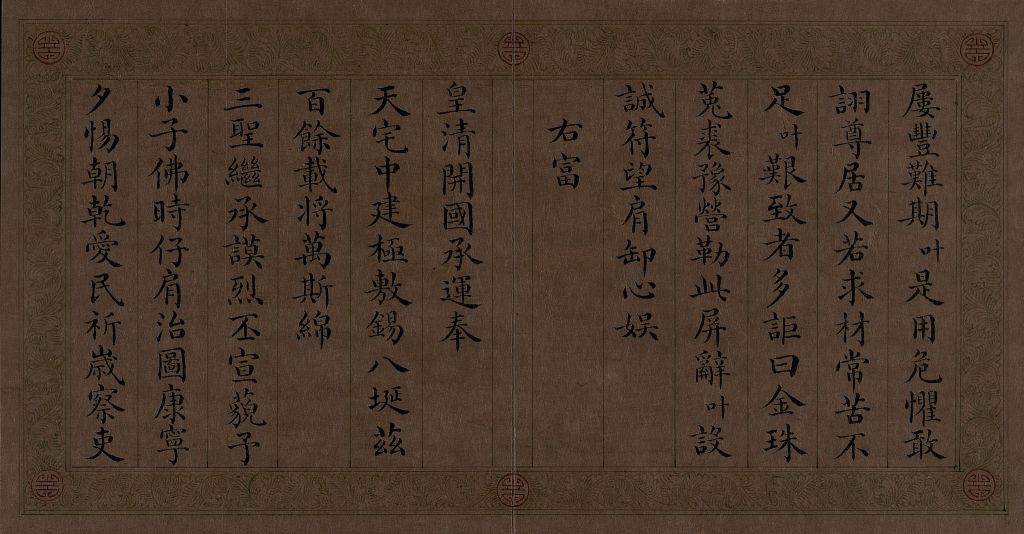 屢豐難期叶是用危懼敢
詡尊居又若求材常苦不
足叶艱致者多詎曰金珠
菟裘豫營勒此屏辭叶設
誠符望肩卸心娛
右富
皇清開國承運奉
天宅中建極敷錫八埏茲
百餘載将萬斯綿
三聖繼承謨烈丕宣藐予
小子佛時仔肩治圖康寧
夕惕朝乾愛民祈歲察吏